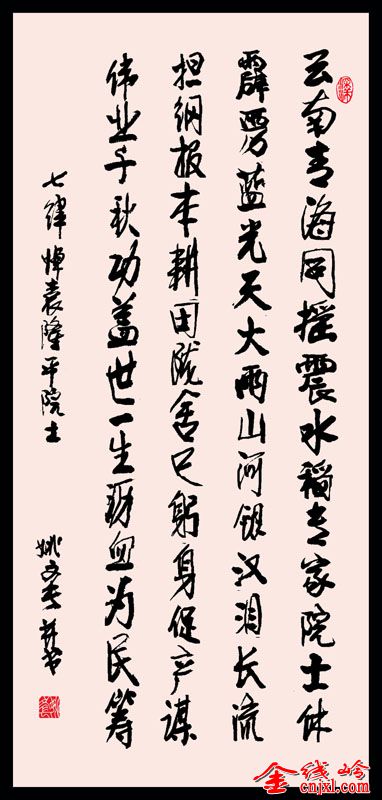 云南青海同摇震水稻专家院士休
霹雳蓝光天大雨山河银汉泪长流
担纲报本耕田陇舍己躬身促产谋
伟业千秋功盖世一生沥血为民筹
七律悼袁隆平院士
姚文并书
金线岭
cnjxl.com